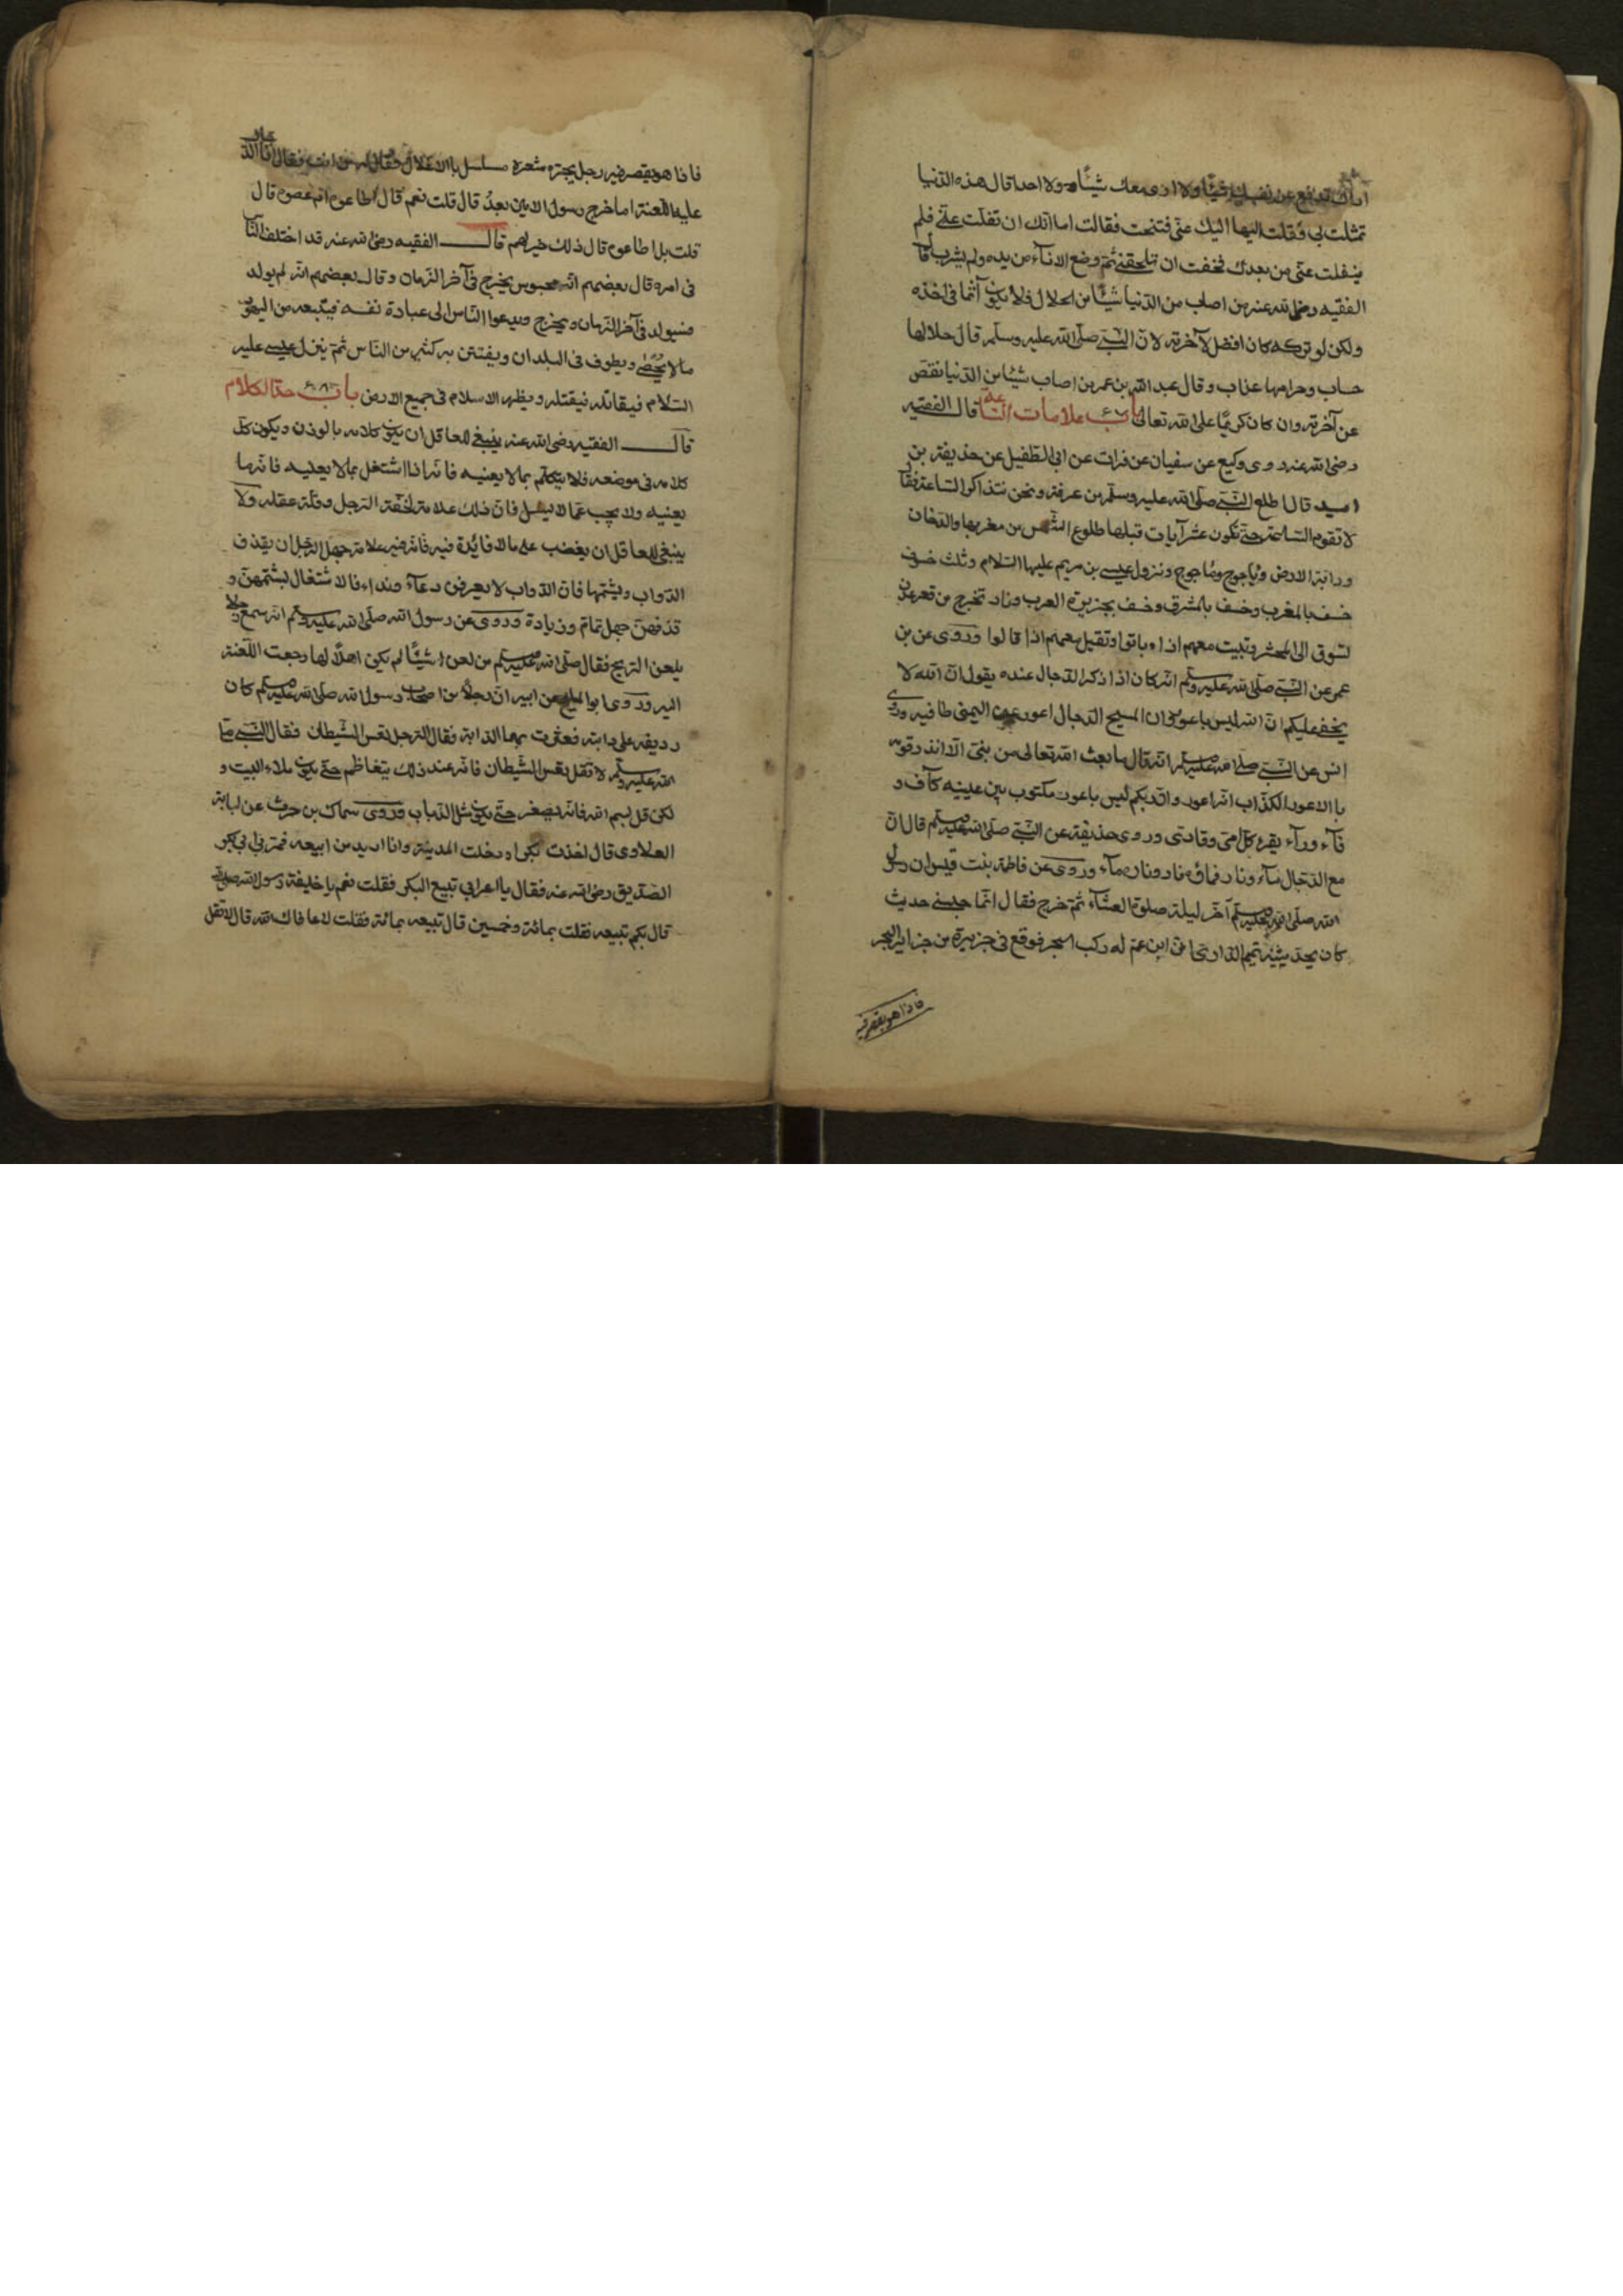 اراك تدفع عن نفسك شيئا ولا ارى معك شيئا ولا احدا قال هذه الدنيا
تمثلت لى فقلت لها اليك عنّى فتنحت فقالت اما انّك ان تفلّت عنّى فلم
ينفلت عنّى من بعدك فخفت ان تلحقنى ثمّ وضع الاناء من يده ولم يشرب قا
الفقيه رضى الله عنه من اصاب من الدّنيا شيئا من الحلال فلا يكون آثما فى اخذه
ولكن لو تركه كان افضل لآخرته لانّ النبىّ صلّى الله عليه وسلّم قال حلالها
حساب وحرامها عذاب وقال عبد الله بن عمر من اصاب شيئا من الدّنيا نقص
عن آخرته وان كان كريمًا على الله تعالى باب علامات السّاعة قال الفقيه
رضى الله عنه روى وكيع عن سفيان عن فرات عن ابى الطّفيل عن حذيفة بن
اسيد قال اطلع النّبىّ صلّى الله عليه وسلّم من غرفة ونحن نتذاكر السّاعة فقا
لا تقوم السّاعة حتّى تكون عشر آيات قبلها طلوع الشّمس من مغربها والدّخان
ودابّة الارض وياجوج وماجوج ونزول عيسى بن مريم عليها السّلام وثلث خسوف
خسف بالمغرب وخسف بالمشرق وخسف بجزيرة العرب ونار تخرج من قعر عدن
تسوق الى المحشر وتبيت معهم اذا باتوا وتقيل معهم اذا قالوا وروى عن بن
عمر عن النّبىّ صلّى الله عليه وسلّم انّه كان اذا ذكر الدّجال عنده يقول انّ الله لا
يخفى عليكم انّ الله ليس باعور وان المسيح الدّجال اعور عين اليمنى طافيه وروى
انس عن النّبىّ صلى الله عليه وسلّم انّه قال ما بعث الله تعالى من نبىّ الّا انذر قومه
باالاعور الكذّاب انّه اعور وانّ ربّكم ليس باعور مكتوب بين عينيه كآف و
فآء ورآء يقرء كلّ امّى وقارئ وروى حذيفة عن النّبىّ صلّى الله عليه وسلّم قال انّ
مع الدّجال مآء ونار فماؤه نار وناره مآء وروى عن فاطمة بنت قيس ان رسول
الله صلّى الله عليه وسلّم آخّر ليلة صلوة العشآء ثمّ خرج فقال انّما حبسنى حديث
كان يحدّثنيه تميم الدّارى انّ ابن عمّ له ركب البحر فوقع فى جزيرة من جزاير البحر
فاذا هو بقصر فيه
فاذا هو بقصر فيه رجل يجرّ شعره مسلسل باالاغلال فقال له من انت فقال انا الدّجال
عليه اللّعنة اما خرج رسول الامين بعدُ قال قلت نعم قال اطاعوه ام عصوه قال
قلت بل اطاعوه قال ذلك خير لهم قال الفقيه رضى الله عنه قد اختلف النّا
فى امره قال بعضهم انّه محبوس يخرج فى آخر الزّمان وقال بعضهم انّه لم يولد
فسيولد فى آخر الزّمان ويخرج ويدعوا النّاس الى عبادة نفسه فيتّبعه من اليهود
ما لا يحصى ويطوف فى البلدان ويفتتن به كثير من النّاس ثمّ ينزل عيسى عليه
السّلام فيقاتله فيقتله ويظهر الاسلام فى جميع الارض باب حدّ الكلام
قال الفقيه رضى الله عنه ينبغى للعاقل ان يكون كلامه بالوزن ويكون كل
كلامه فى موضعه فلا يتكلّم بما لا يعنيه فانّه اذا اشتغل بما لا يعنيه فاته ما
يعنيه ولا يجيب عمّا لا يسئل فانّ ذلك علامة لخفّة الرّجل وقلّة عقله ولا
ينبغى للعاقل ان يغضب على ما لا فائدة فيه فانّه فيه علامة جهل الرّجل ان يقذف
الدّواب ويشتمها فانّ الدّواب لا يعرفن دعآء ونداء فالاشتغال بشتمهنّ و
قذفهنّ جهل تمامّ وزيادة وروى عن رسول الله صلّى الله عليه وسلّم انّه سمع رجلا
يلعن الرّيح فقال صلّى الله عليه وسلّم من لعن شيئًا لم يكن اهلًا لها رجعت اللّعنة
اليه وروى ابو المليح عن ابيه انّ رجلا من اصحاب رسول الله صلّى الله عليه وسلّم كان
رديفه على دابته فعثرت بهما الدّابة فقال الرّجل تعس الشّيطان فقال النّبىّ صلّى
الله عليه وسلّم لا تقل تعس الشّيطان فانّه عند ذلك يتعاظم حتّى يكون ملاء البيت و
لكن قل بسم الله فانّه يصغر حتّى يكون مثل الذّباب وروى سماك بن حرث عن لبابة
قال اخذت بكرا ودخلت المدينة وانا اريد من ابيعه فمرّ بى ابى بكر
الصّدّيق رضى الله عنه فقال يا اعرابى تبيع البكر فقلت نعم يا خليفة رسول الله صلى الله
قال بكم تبيعه فقلت بمائة وخمسين قال تبيعه بمائة فقلت لا عافاك الله قال لا تقل